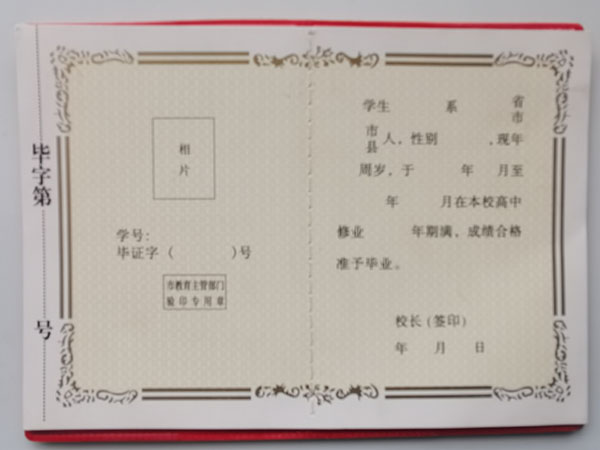 毕字第 号
相
片
学号：
毕证字（ ）号
市教育主管部门
验印专用章
学生 系 省
市
市
县 人，性别 ，现年
周岁，于 年 月至
年 月在本校高中
修业 年期满，成绩合格
准予毕业。
校长（签印）
年 月 日